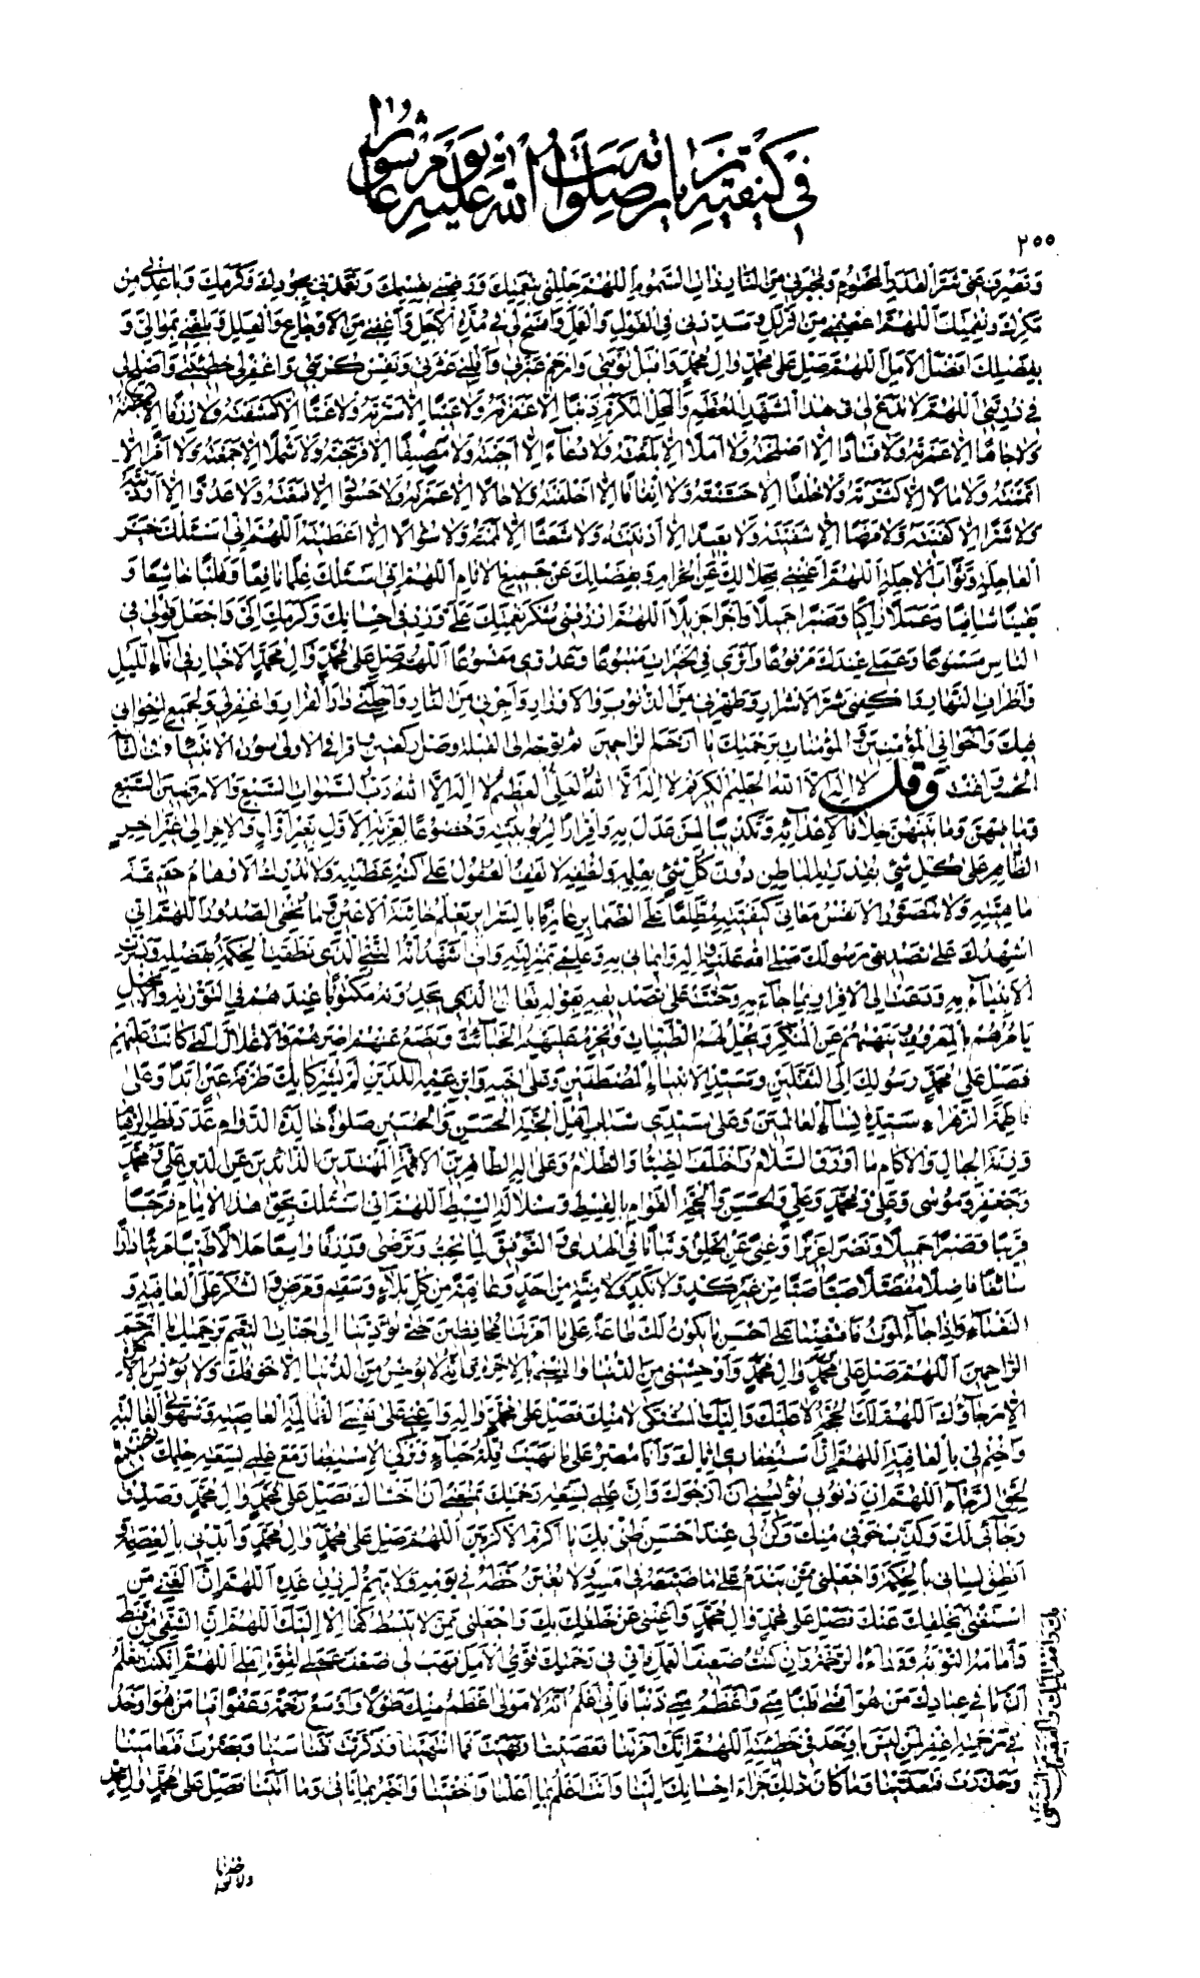 في كيفية زيارته صلوات الله عليه يوم عاشورا
٢٥٥
وتصرف عني شر القدر المحتوم وتجيرني من النار ذات السموم اللهم جللني بنعمتك ورضني بقسمك وتغمدني بجودك وكرمك وباعدني من
مكرك ونقمتك اللهم اعصمني من الزلل وسددني في القول والعمل وافسح لي في مدة الاجل واعفني من الاوجاع والعلل وبلغني بموالي و
بفضلك افضل الامل اللهم صل على محمد وال محمد واقبل توبتي وارحم عبرتي واقلني عثرتي ونفس كربتي واغفر لي خطيئتي واصلح لي
في ذريتي اللهم لا تدع لي في هذا المشهد المعظم والمحل المكرم ذنبا الا غفرته ولا عيبا الا سترته ولا غما الا كشفته ولا رزقا الا بسطته
ولا جاها الا عمرته ولا فسادا الا اصلحته ولا املا الا بلغته ولا دعاء الا اجبته ولا مضيقا الا فرجته ولا شملا الا جمعته ولا امرا الا
اتممته ولا مالا الا كثرته ولا خلقا الا حسنته ولا انفاقا الا اخلفته ولا حالا الا عمرته ولا حسودا الا قمعته ولا عدوا الا ارديته
ولا شرا الا كفيته ولا مرضا الا شفيته ولا بعيدا الا ادنيته ولا شعثا الا لممته ولا سؤالا الا اعطيته اللهم اني اسئلك خير
العاجلة وثواب الاجلة اللهم اغنني بحلالك عن الحرام وبفضلك عن جميع الانام اللهم اني اسئلك علما نافعا وقلبا خاشعا و
يقينا شافيا وعملا زاكيا وصبرا جميلا واجرا جزيلا اللهم ارزقني شكر نعمتك علي وزد في احسانك وكرمك الي واجعل قولي في
الناس مسموعا وعملي عندك مرفوعا واثري في الخيرات متبوعا وعدوي مقموعا اللهم صل على محمد وال محمد الاخيار في اناء الليل
واطراف النهار واكفني شر الاشرار وطهرني من الذنوب والاوزار واجرني من النار واحلني دار القرار واغفر لي ولجميع اخواني
فيك واخواتي المؤمنين والمؤمنات برحمتك يا ارحم الراحمين ثم توجه الى القبلة وصل ركعتين واقرا في الاولى سورة الانبياء وفي الثانية
الحشر واقنت وقل لا اله الا الله الحليم الكريم لا اله الا الله العلي العظيم لا اله الا الله رب السموات السبع والارضين السبع
وما فيهن وما بينهن خلافا لاعدائه وتكذيبا لمن عدل به واقرارا لربوبيته وخضوعا لعزته الاول بغير اول والاخر الى غير اخر
الظاهر على كل شيء بقدرته الباطن دون كل شيء بعلمه ولطفه لا تقف العقول على كنه عظمته ولا تدرك الاوهام حقيقة
ماهيته ولا تتصور الانفس معاني كيفيته مطلعا على الضمائر عارفا بالسرائر يعلم خائنة الاعين وما تخفي الصدور اللهم اني
اشهدك على تصديقي رسولك صلى الله عليه واله وايماني به وعلمي بمنزلته واني اشهد انه النبي الذي نطقت الحكمة بفضله وبشرت
الانبياء به ودعت الى الاقرار بما جاء به وحثت على تصديقه بقوله تعالى الذي يجدونه مكتوبا عندهم في التورية والانجيل
يامرهم بالمعروف وينهيهم عن المنكر ويحل لهم الطيبات ويحرم عليهم الخبائث ويضع عنهم اصرهم والاغلال التي كانت عليهم
فصل على محمد رسولك الى الثقلين وسيد الانبياء المصطفين وعلى اخيه وابن عمه اللذين لم يشركا بك طرفة عين ابدا وعلى
فاطمة الزهراء سيدة نساء العالمين وعلى سيدي شباب اهل الجنة الحسن والحسين صلوة خالدة الدوام عدد قطر الرهام
وزنة الجبال والاكام ما اورق السلام واختلف الضياء والظلام وعلى اله الطاهرين الائمة المهتدين الذائدين عن الدين علي ومحمد
وجعفر وموسى وعلي ومحمد وعلي والحسن والحجة القوام بالقسط وسلالة السبط اللهم اني اسئلك بحق هذا الامام فرجا
قريبا وصبرا جميلا ونصرا عزيزا وغنى عن الخلق وثباتا في الهدى والتوفيق لما تحب وترضى ورزقا واسعا حلالا طيبا مريئا دارا
سائغا فاضلا مفضلا صبا صبا من غير كد ولا نكد ولا منة من احد وعافية من كل بلاء وسقم ومرض والشكر على العافية و
النعماء واذا جاء الموت فاقبضنا على احسن ما يكون لك طاعة على ما امرتنا محافظين حتى تؤدينا الى جنات النعيم برحمتك يا ارحم
الراحمين اللهم صل على محمد وال محمد واوحشني من الدنيا وانسني بالاخرة فانه لا يوحش من الدنيا الا خوفك ولا يؤنس بالاخرة
الا رجاؤك اللهم لك الحجة لا عليك واليك المشتكى لا منك فصل على محمد واله واعني على نفسي الظالمة العاصية وشهوتي الغالبة
واختم لي بالعافية اللهم ان استغفاري اياك وانا مصر على ما نهيت قلة حياء وتركي الاستغفار مع علمي بسعة حلمك تضييع
لحق الرجاء اللهم ان ذنوبي تؤيسني ان ارجوك وان علمي بسعة رحمتك يمنعني ان اخشاك فصل على محمد وال محمد وصدق
رجائي لك وكذب خوفي منك وكن لي عند احسن ظني بك يا اكرم الاكرمين اللهم صل على محمد وال محمد وايدني بالعصمة و
انطق لساني بالحكمة واجعلني ممن يندم على ما ضيعه في امسه ولا يغبن حظه في يومه ولا يهم لرزق غده اللهم ان الغني من
استغنى بخلقك عنك فصل على محمد وال محمد واغنني عن خلقك بك واجعلني ممن لا يبسط كفا الا اليك اللهم ان الشقي من قنط
وامامه التوبة ووراءه الرحمة وان كنت ضعيف العمل فاني في رحمتك قوي الامل فهب لي ضعف عملي لقوة املي اللهم ان كنت تعلم
ان ما في عبادك من هو اقسى قلبا مني واعظم مني ذنبا فاني اعلم انه لا مولى اعظم منك طولا واوسع رحمة وعفوا فيا من هو اوحد
في رحمته اغفر لمن ليس باوحد في خطيئته اللهم انك امرتنا فعصينا ونهيت فما انتهينا وذكرت فتناسينا وبصرت فتعامينا
وحذرت فتعدينا وما كان ذلك جزاء احسانك الينا وانت اعلم بما اعلنا واخفينا واخبر بما ناتي وما اتينا فصل على محمد وال محمد
ولا تؤاخذنا